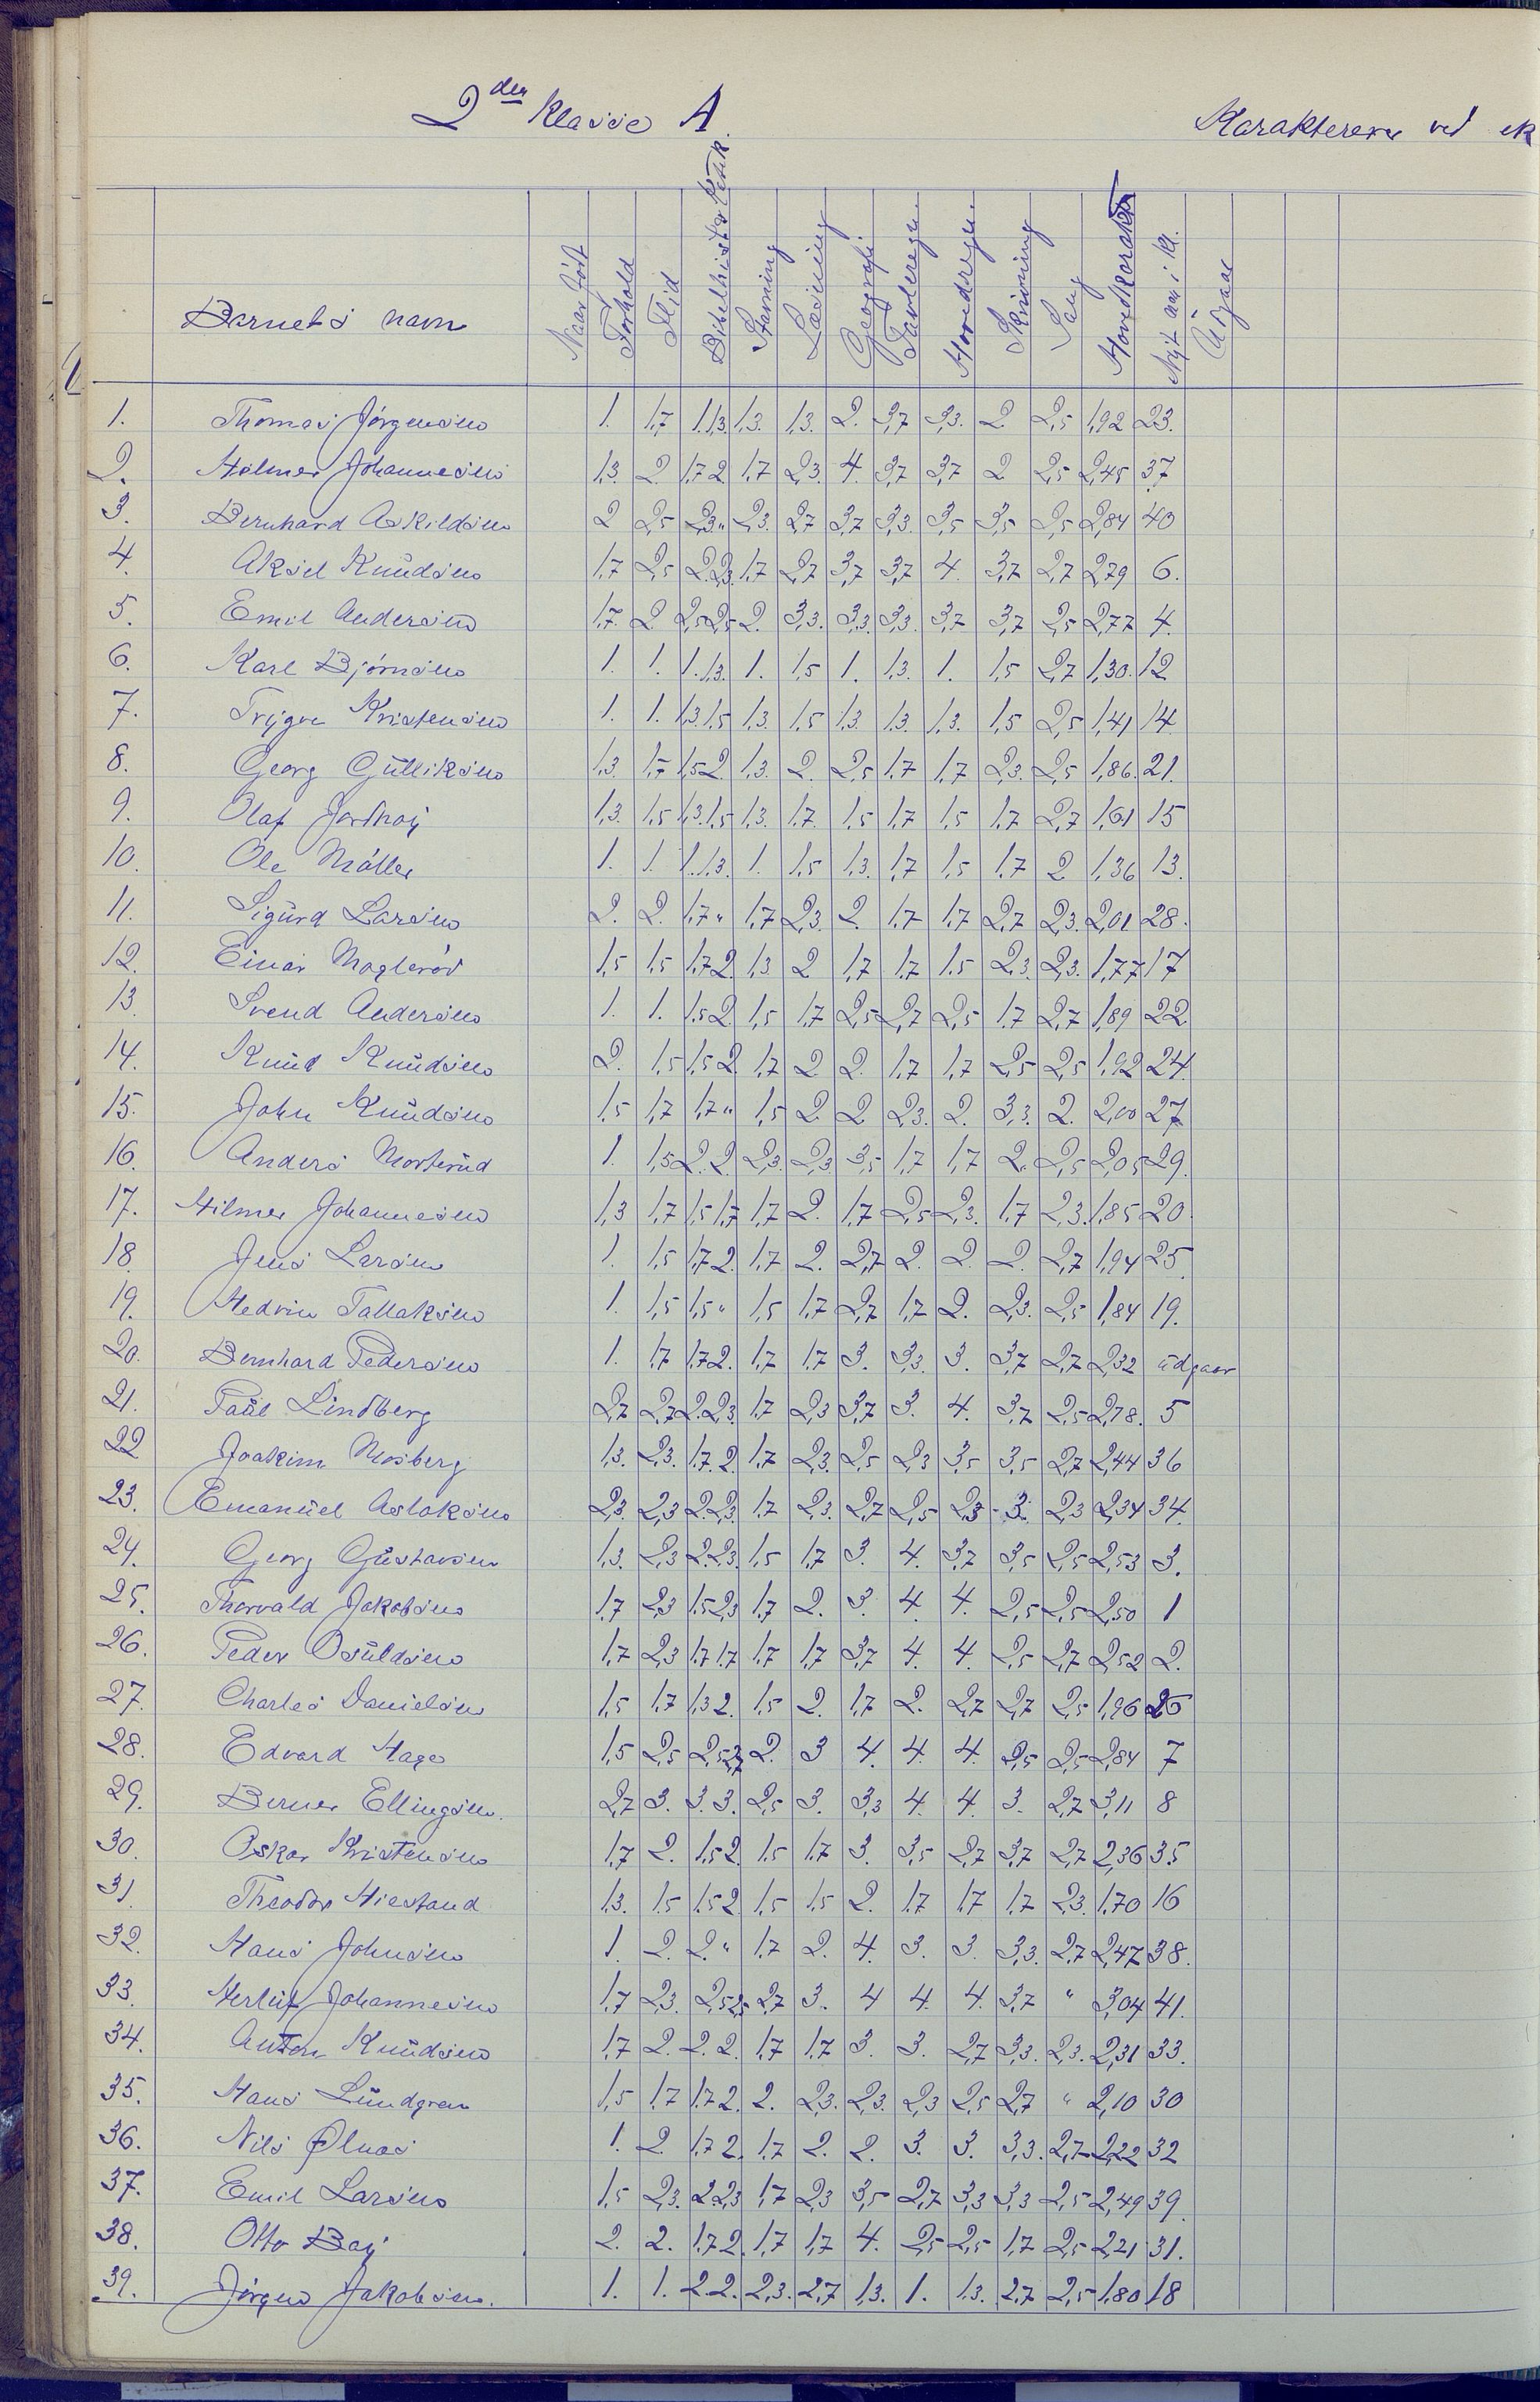 2den Klasse A.
Karakterer ved ek
Barnets navn Naar født Forhold Flid Bibelhist. Katek Stavning Læsning Geografi Tavleregn. Hovedregn. Skrivning Sang Hovedkarakter Nyt nr. i kl. Udgaar
1. Thomas Jörgensen 1. 1,7 1. 1,3. 1,3. 1,3. 2. 2,7 2,3. 2 2,5 1,92 23.
2. Hilmer Johannesen 1,3 2. 1,7 2. 1,7 2,3. 4. 3,7 3,7 2 2,5 2,45 37
3. Bernhard Askildsen 2 2,5 2,3 " 2,3. 2,7 3,7 3,3. 3,5 3,5 2,5 2,84 40
4. Aksel Knudsen 1,7 2,5 2. 2,3. 1,7 2,7 3,7 3,7 4. 3,7 2,7 2,79 6.
5. Emil Andersen 1,7. 2. 2,5 2,5 2. 3,3. 3,3. 3,3. 3,7 3,7 2,5 2,77 4.
6. Karl Björnsen 1. 1. 1. 1,3. 1. 1,5 1. 1,3. 1. 1,5 2,7 1,30. 12
7. Trygve Kristensen 1. 1. 1,3. 1,5 1,3. 1,5 1,3. 1,3. 1,3. 1,5 2,5 1,41 14.
8. Georg Gulliksen 1,3. 1,7 1,5 2. 1,3. 2. 2,5 1,7 1,7 2,3. 2,5 1,86. 21.
9. Olaf 1,3. 1,5 1,3. 1,5 1,3. 1,7. 1,5 1,7 1,5 1,7 2,7 1,61 15
10. Ole Möller 1. 1. 1. 1,3. 1. 1,5 1,3. 1,7 1,5 1,7 2 1,36 13.
11. Sigurd Larsen 2. 2. 1,7 " 1,7 2,3. 2. 1,7 1,7 2,7 2,3. 2,01 28.
12. Einar Magleröd 1,5 1,5 1,7 2. 1,3 2 1,7 1,7 1,5 2,3. 2,3. 1,77 17
13 Svend Andersen 1. 1. 1,5 2. 1,5 1,7 2,5 2,7 2,5 1,7 2,7 1,89 22.
14. Knud Knudsen 2. 1,5 1,5 2. 1,7 2 2. 1,7 1,7 2,5 2,5 1,92 24.
15. John Knudsen 1,5 1,7 1,7 " 1,5 2. 2. 2,3. 2. 3,3. 2. 2,00 27.
16. Anders Morterud 1. 1,5 2. 2. 2,3. 2,3 3,5 1,7 1,7 2. 2,5 2,05 29.
17. Hilmer Johannesen 1,3 1,7 1,5 1,7 1,7 2. 1,7 2,5 2,3. 1,7 2,3. 1,85 20.
18. Jens Larsen 1. 1,5 1,7 2. 1,7 2. 2,7 2. 2. 2. 2,7 1,94 25.
19. Hedvin Tallaksen 1. 1,5 1,5 " 1,5 1,7 2,7 1,7 2. 2,3. 2,5 1,84 19.
20. Bernhard Pedersen 1. 1,7 1,7 2. 1,7 1,7 3. 3,3 3. 3,7 2,7 2,32 udgaar
21. Paul Lindberg 2,7 2,7 2. 2,3. 1,7 2,3 3,7 3. 4. 3,7 2,5 2,78. 5
22 Joakim Mosberg 1,3. 2,3. 1,7. 2. 1,7 2,3. 2,5 2,3 3,5 3,5 2,7 2,44 36
23. Emanuel Aslaksen 2,3. 2,3 2. 2,3. 1,7 2,3. 2,7 2,5 2,3 3. 2,3 2,34 34.
24. Georg Gustavsen 1,3. 2,3 2. 2,3. 1,5 1,7 3. 4. 3,7 3,5 2,5 2,53 3.
25. Thorvald Jakobsen 1,7 2,3 1,5 2,3 1,7 2. 3. 4. 4. 2,5 2,5 2,50 1
26. Peder Osuldsen 1,7 2,3 1,7 1,7 1,7 1,7 3,7 4. 4. 2,5 2,7 2,52 2.
27. Charles Danielsen 1,5 1,7 1,3 2. 1,5 2. 1,7 2. 2,7 2,7 2,5 1,96 26
28. Edvard Hage 1,5 2,5 2,5 2,7 2. 3 4. 4. 4. 2,5 2,5 2,84 7
29. Berner Ellingsen. 2,7 3. 3. 3. 2,5 3. 3,3 4. 4. 3. 2,7 3,11 8
30. Oskar Kristensen 1,7 2. 1,5 2. 1,5 1,7 3. 3,5 2,7 3,7 2,7 2,36 35
31. Theodor Hiestand 1,3. 1,5 1,5 2. 1,5 1,5 2. 1,7 1,7 1,7 2,3. 1,70 16
32. Hans Johnsen 1. 2. 2. " 1,7 2. 4. 3. 3. 3,3. 2,7 2,47 38.
33. Herluf Johannesen 1,7 2,3. 2,5 2,7 3. 4 4. 4. 3,7 " 3,04 41.
34. Anton Knudsen 1,7 2. 2. 2. 1,7 1,7 3. 3. 2,7 3,3. 2,3. 2,31 33.
35. Hans Lundgren 1,5 1,7 1,7 2. 2. 2,3. 2,3. 2,3 2,5 2,7 " 2,10 30
36. Nils Ølnas 1. 2. 1,7 2. 1,7 2. 2. 3. 3. 3,3. 2,7 2,22 32
37. Emil Larsen 1,5 2,3. 2. 2,3 1,7 2,3 3,5 2,7 3,3 3,3 2,5 2,49 39.
38. Otto Bay 2. 2. 1,7 2. 1,7 1,7 4. 2,5 2,5 1,7 2,5 2,21 31.
39. Jörgen Jakobsen. 1. 1. 2. 2. 2,3. 2,7 1,3. 1. 1,3. 2,7 2,5 1,80 18